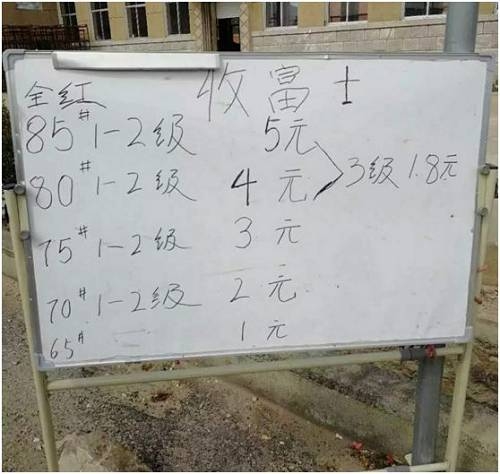 收富士
全红
85# 1-2级 5元
80# 1-2级 4元 3级 1.8元
75# 1-2级 3元
70# 1-2级 2元
65# 1元